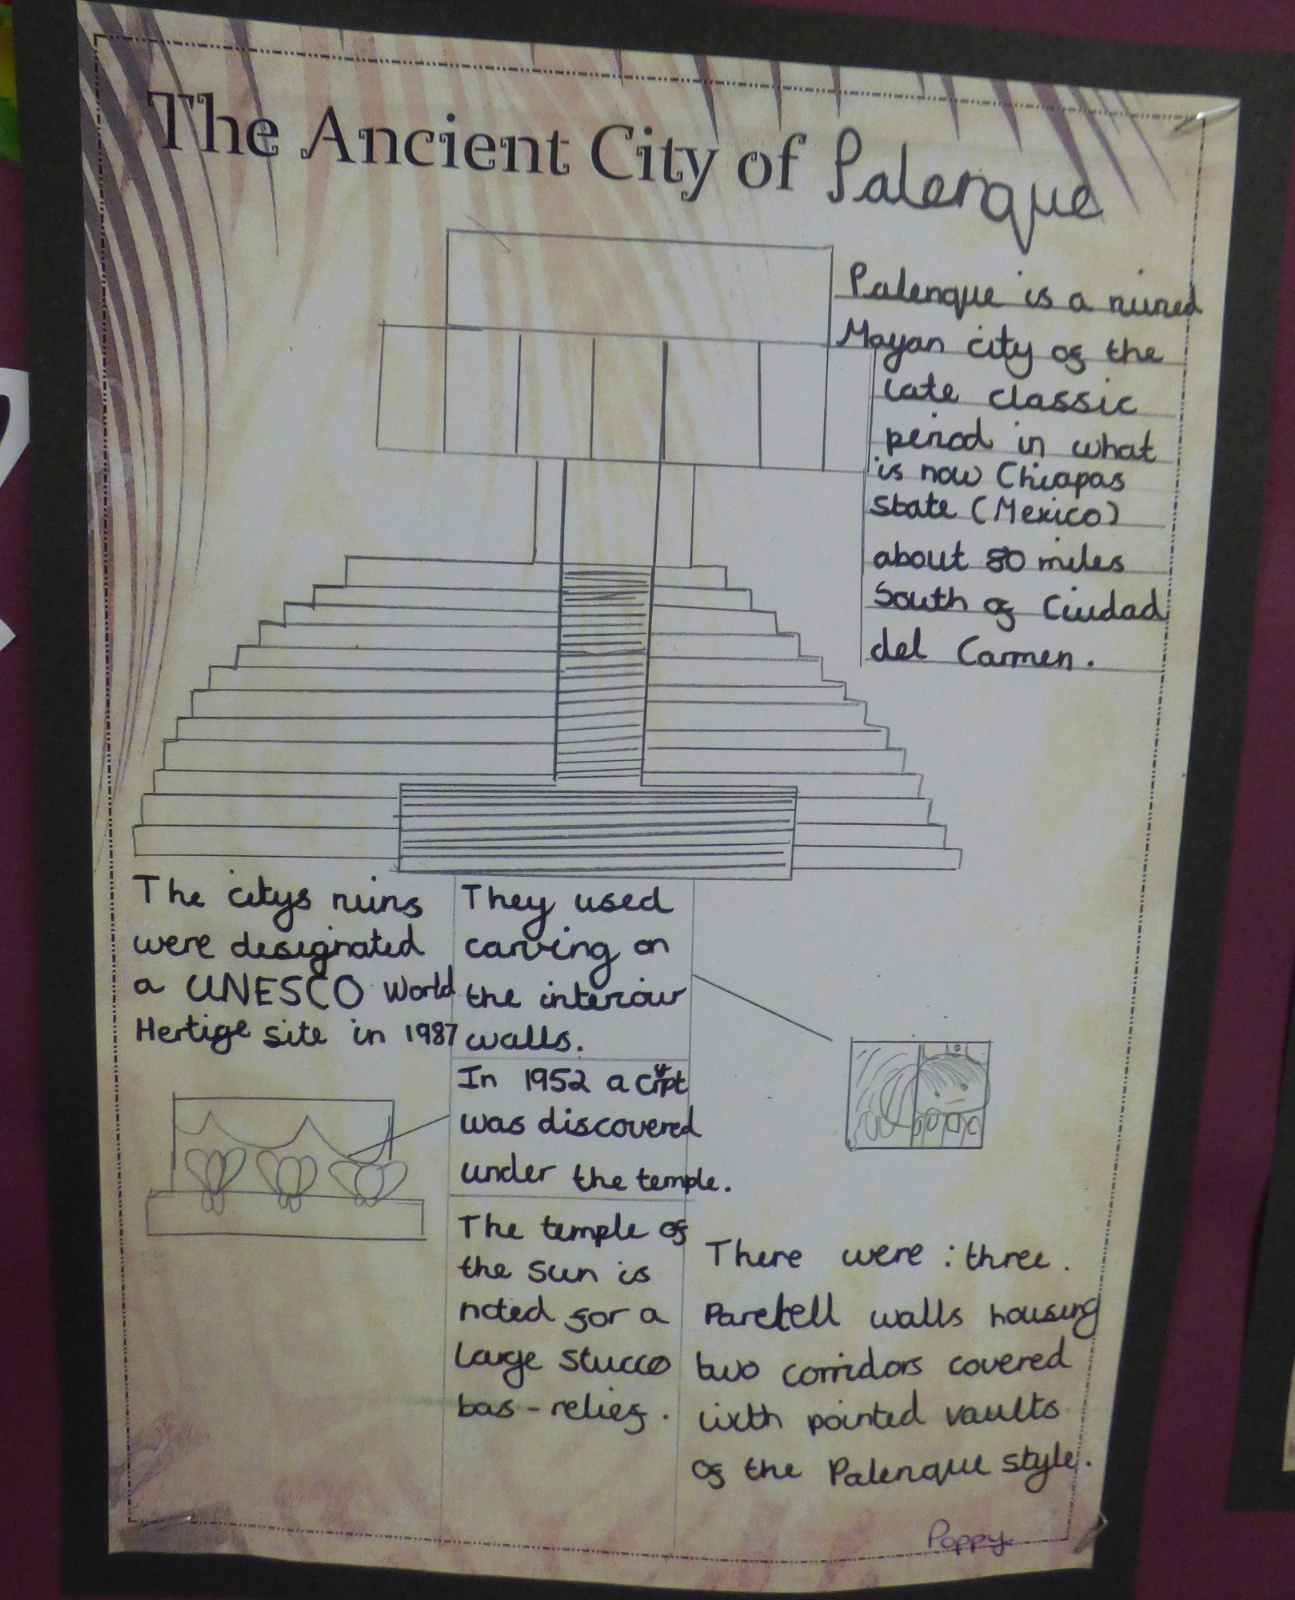 The Ancient City of Palenque
Palenque is a ruined
Mayan city of the
late classic
period in what
is now Chiapas
State (Mexico)
about 80 miles
South of Ciudad
del Carmen.
The citys ruins
were designated
a UNESCO World
Hertige site in 1987
They used
carving on
the interiour
walls.
In 1952 a crypt
was discovered
under the temple.
The temple of
the Sun is
noted for a
large stucco
bas-relief.
There were : three.
Paretell walls housing
two corridors covered
with pointed vaults
of the Palenque style.
Poppy